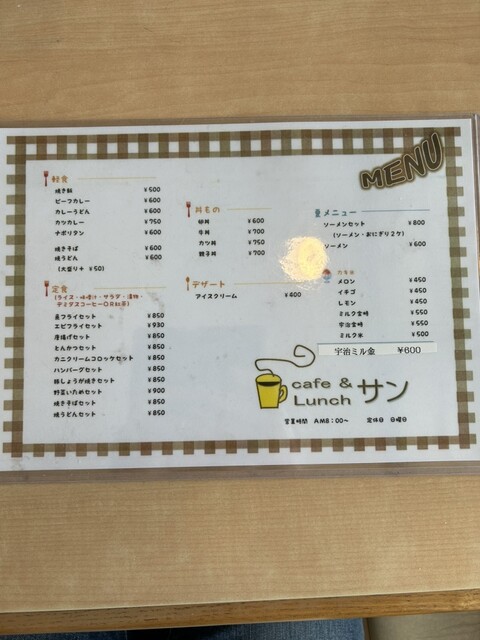 MENU
軽食
焼き飯 ¥500
ビーフカレー ¥600
カレーうどん ¥600
カツカレー ¥750
ナポリタン ¥600
焼きそば ¥600
焼うどん ¥600
(大盛り+ ¥50)
定食
(ライス・味噌汁・サラダ・漬物・
デミタスコーヒーOR紅茶)
魚フライセット ¥850
エビフライセット ¥930
唐揚げセット ¥850
とんかつセット ¥850
カニクリームコロッケセット ¥850
ハンバーグセット ¥850
豚しょうが焼きセット ¥850
野菜いためセット ¥900
焼きそばセット ¥850
焼うどんセット ¥850
丼もの
卵丼 ¥600
牛丼 ¥700
カツ丼 ¥750
親子丼 ¥700
デザート
アイスクリーム ¥400
メニュー
ソーメンセット ¥800
(ソーメン・おにぎり2ケ)
ソーメン ¥600
メロン ¥450
イチゴ ¥450
レモン ¥450
ミルク金時 ¥550
宇治金時 ¥550
ミルク氷 ¥500
宇治ミル金 ¥600
cafe &
Lunch サン
営業時間 AM8:00~ 定休日 日曜日